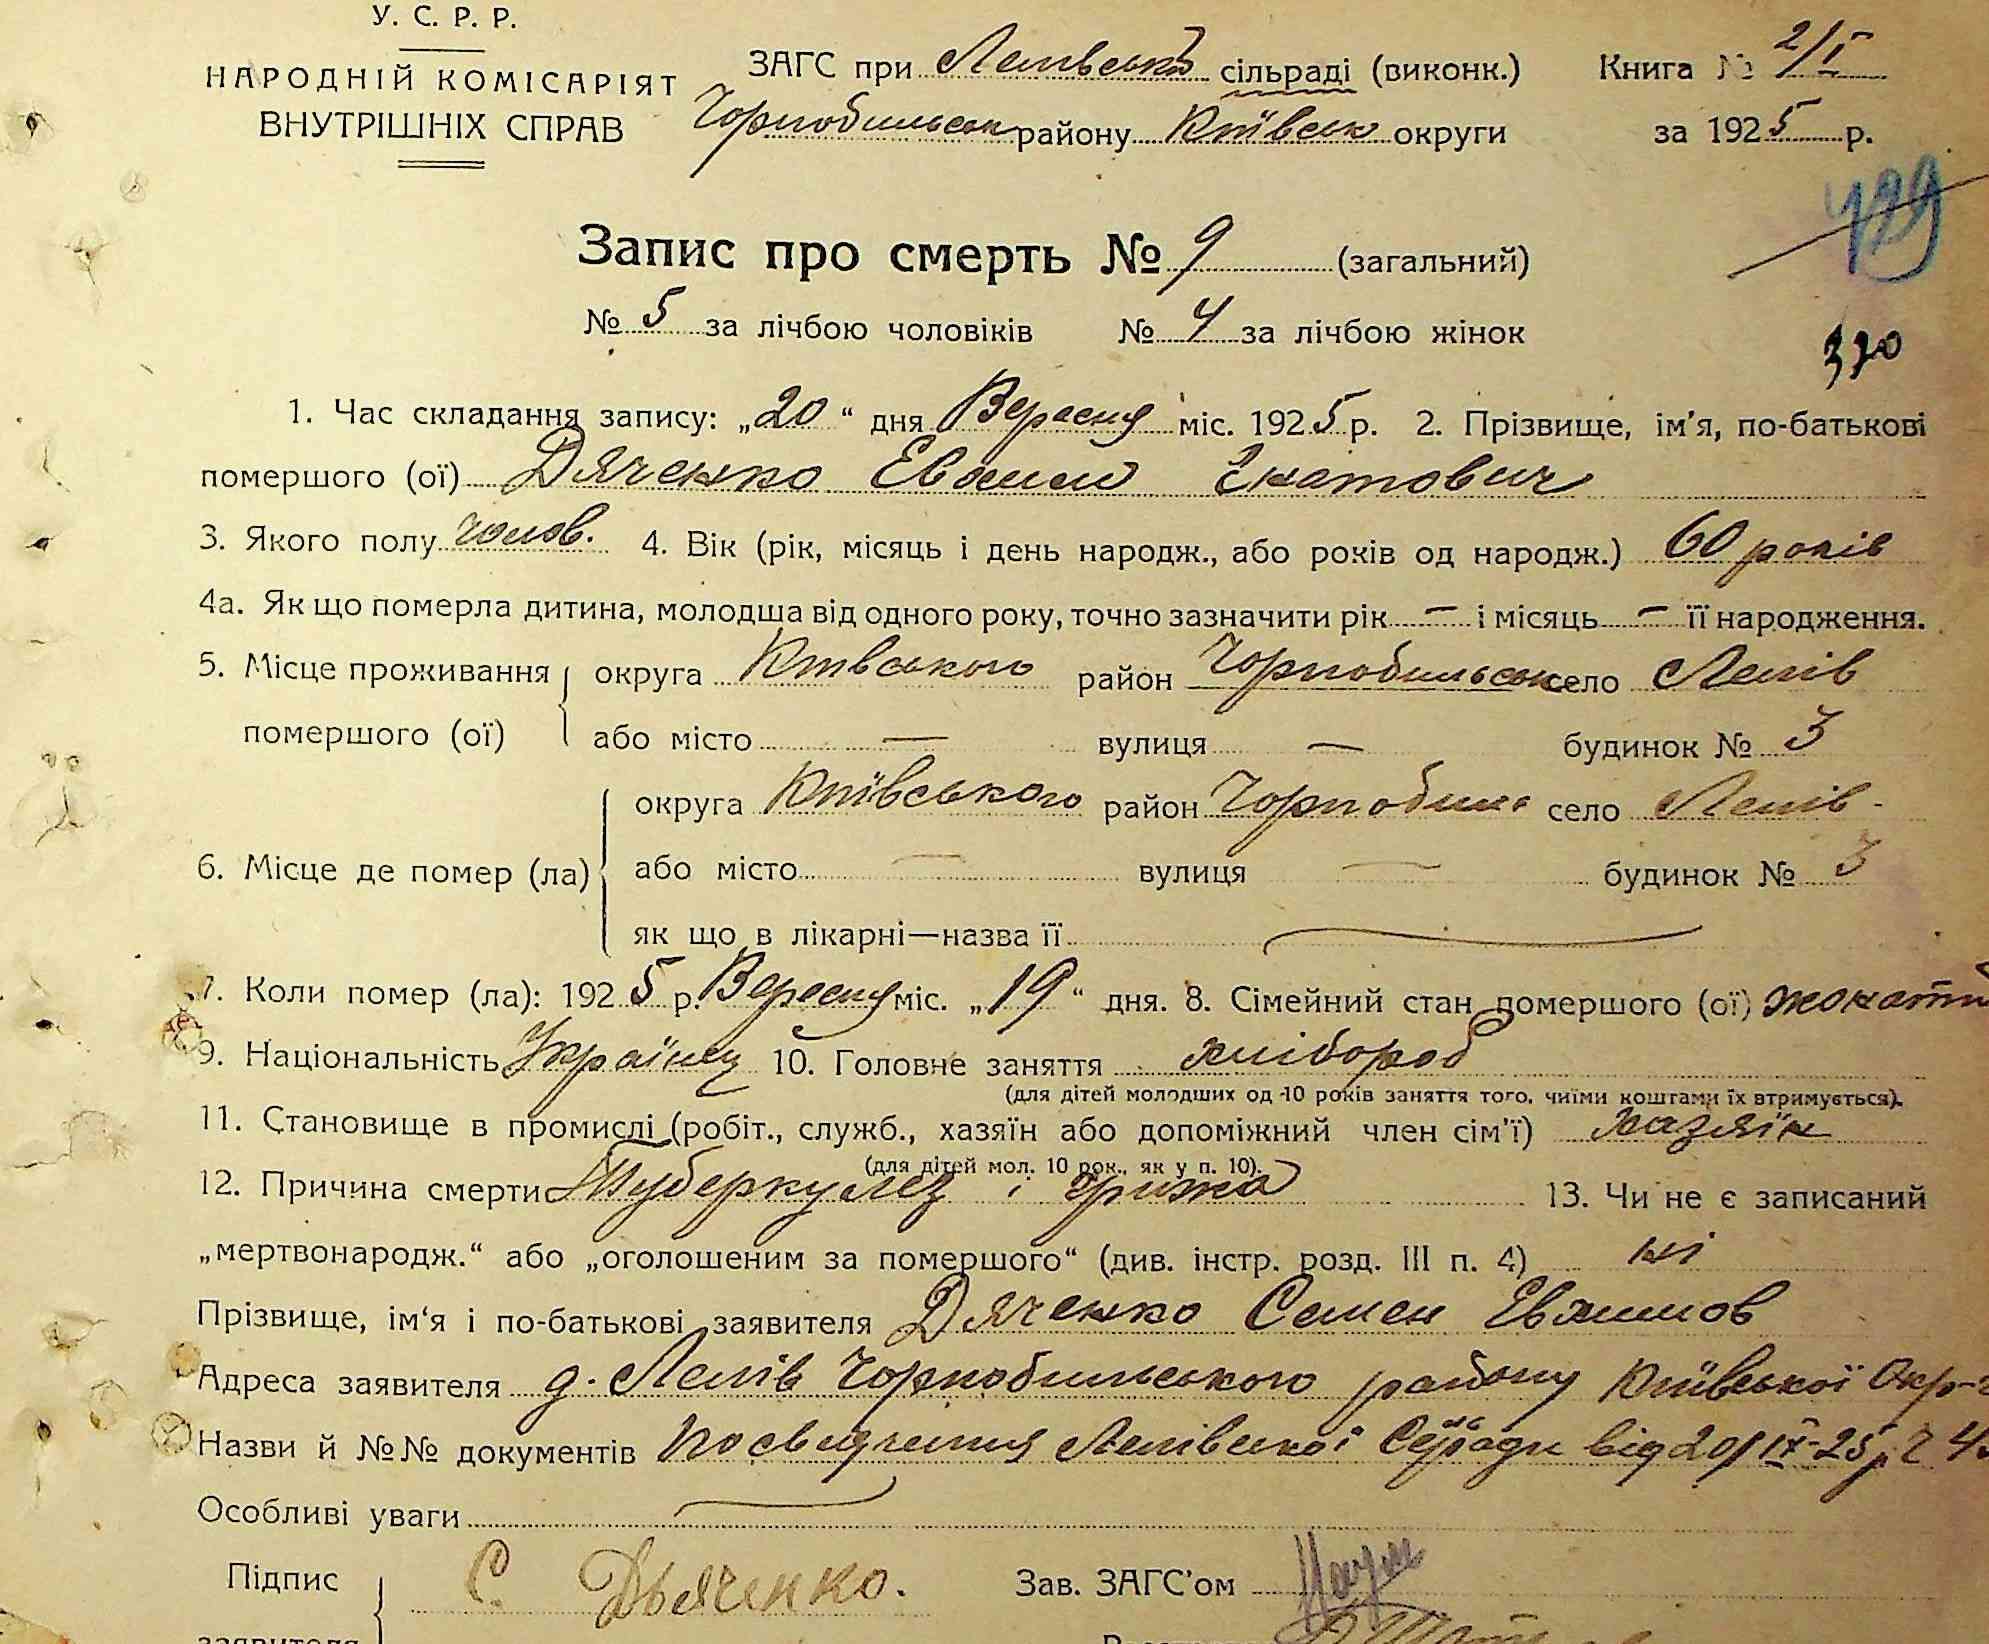 У. С. Р. Р.
НАРОДНІЙ КОМІСАРІЯТ
ВНУТРІШНІХ СПРАВ
ЗАГС при Лелівській сільраді (виконк.)
Чорнобильськ району Київськ округи
Книга № 2/I
за 1925 р.
429
Запис про смерть № 9 (загальний)
№ 5 за лічбою чоловіків № 4 за лічбою жінок
320
1. Час складання запису: „20“ дня Вересня міс. 1925 р. 2. Прізвище, ім'я, по-батькові
помершого (ої) Дяченко Евхим Ігнатович
3. Якого полу чолов. 4. Вік (рік, місяць і день народж., або років од народж.) 60 років
4а. Як що померла дитина, молодща від одного року, точно зазначити рік — і місяць — її народження.
5. Місце проживання округа Київського район Чорнобильськ село Лелів
помершого (ої) або місто — вулиця — будинок № 3
округа Київського район Чорнобил село Лелів
6. Місце де помер (ла) або місто — вулиця — будинок № 3
як що в лікарні—назва її
7. Коли помер (ла): 1925 р. Вересня міс. „19“ дня. 8. Сімейний стан помершого (ої) жонатий
9. Національність Українец 10. Головне заняття хлібороб
(для дітей молодших од 10 років заняття того, чиїми коштами їх втримується).
11. Становище в промислі (робіт., служб., хазяїн або допоміжний член сім'ї) хазяїн
(для дітей мол. 10 рок., як у п. 10).
12. Причина смерти Туберкулез і грижа 13. Чи не є записаний
„мертвонародж.“ або „оголошеним за помершого“ (див. інстр. розд. III п. 4) ні
Прізвище, ім'я і по-батькові заявителя Дяченко Семен Евхимов
Адреса заявителя д. Лелів Чорнобильського району Київської Окр-
Назви й №№ документів Посвидчення Лелівської Сільради від 20/IX-25 р. Ч 4
Особливі уваги
Підпис С. Дьяченко. Зав. ЗАГС'ом
заявителя